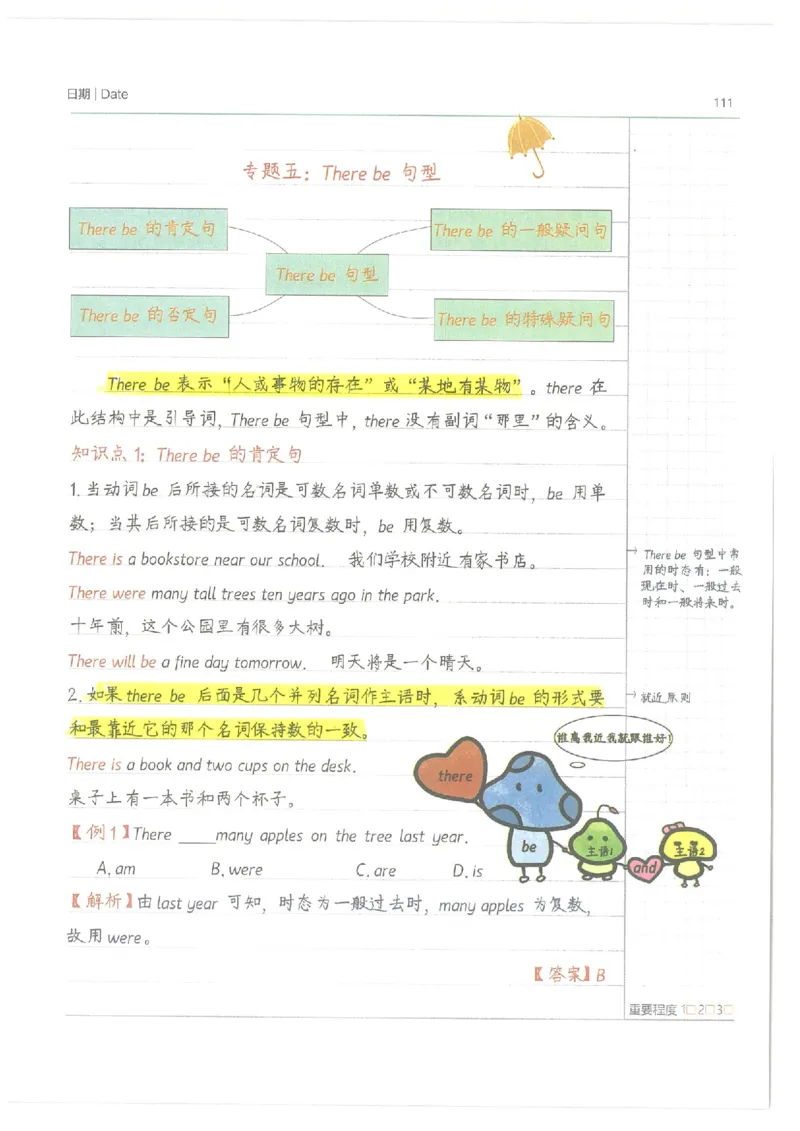 日期 | Date
111
专题五：There be 句型
There be 的肯定句
There be 的一般疑问句
There be 句型
There be 的否定句
There be 的特殊疑问句
There be 表示“人或事物的存在”或“某地有某物”。there 在
此结构中是引导词，There be 句型中，there 没有副词“那里”的含义。
知识点 1：There be 的肯定句
1. 当动词 be 后所接的名词是可数名词单数或不可数名词时，be 用单
数；当其后所接的是可数名词复数时，be 用复数。
There is a bookstore near our school. 我们学校附近有家书店。
There were many tall trees ten years ago in the park.
十年前，这个公园里有很多大树。
There will be a fine day tomorrow. 明天将是一个晴天。
2. 如果 there be 后面是几个并列名词作主语时，系动词 be 的形式要
和最靠近它的那个名词保持数的一致。
There is a book and two cups on the desk.
桌子上有一本书和两个杯子。
【例1】There ____many apples on the tree last year.
A. am B. were C. are D. is
【解析】由 last year 可知，时态为一般过去时，many apples 为复数，
故用 were。
【答案】B
There be 句型中常
用的时态有：一般
现在时、一般过去
时和一般将来时。
就近原则
谁离我近我就跟谁好！
there
be
主语1
and
主语2
重要程度 1□ 2□ 3□